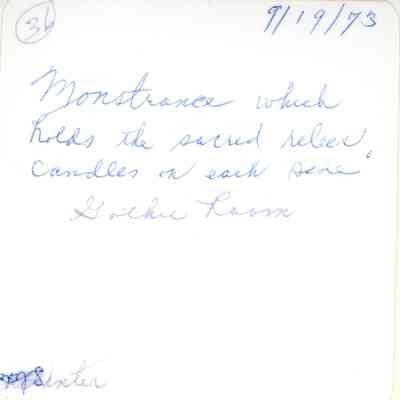 36
9/19/73
Monstrance which
holds the sacred relics,
candles on each side
Gothic Room